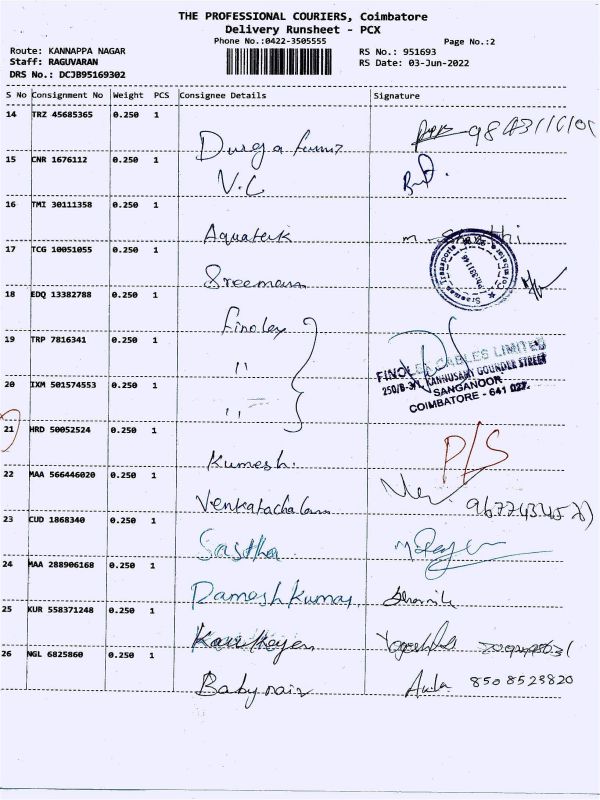 THE PROFESSIONAL COURIERS, Coimbatore
Delivery Runsheet - PCX
Phone No.:0422-3505555
Page No.:2
Route: KANNAPPA NAGAR
RS No.: 951693
Staff: RAGUVARAN
RS Date: 03-Jun-2022
DRS No.: DCJB95169302
S No Consignment No Weight PCS Consignee Details Signature
14 TRZ 45685365 0.250 1
Durga
15 CNR 1676112 0.250 1
V.C
16 TMI 30111358 0.250 1
Aquatek
17 TCG 10051055 0.250 1
Sreemann
18 EDQ 13382788 0.250 1
Finolex
19 TRP 7816341 0.250 1
"
20 IXM 501574553 0.250 1
"
FINOLEX CABLES LIMITED
250/B-3/1, KANNUSAMY GOUNDER STREET
SANGANOOR
COIMBATORE - 641 027.
21 HRD 50052524 0.250 1
Kumesh.
P/S
22 MAA 566446020 0.250 1
Venkatachalam
23 CUD 1868340 0.250 1
Sastha
24 MAA 288906168 0.250 1
Rameshkumar
25 KUR 558371248 0.250 1
26 NGL 6825860 0.250 1
Babynair
8508523820